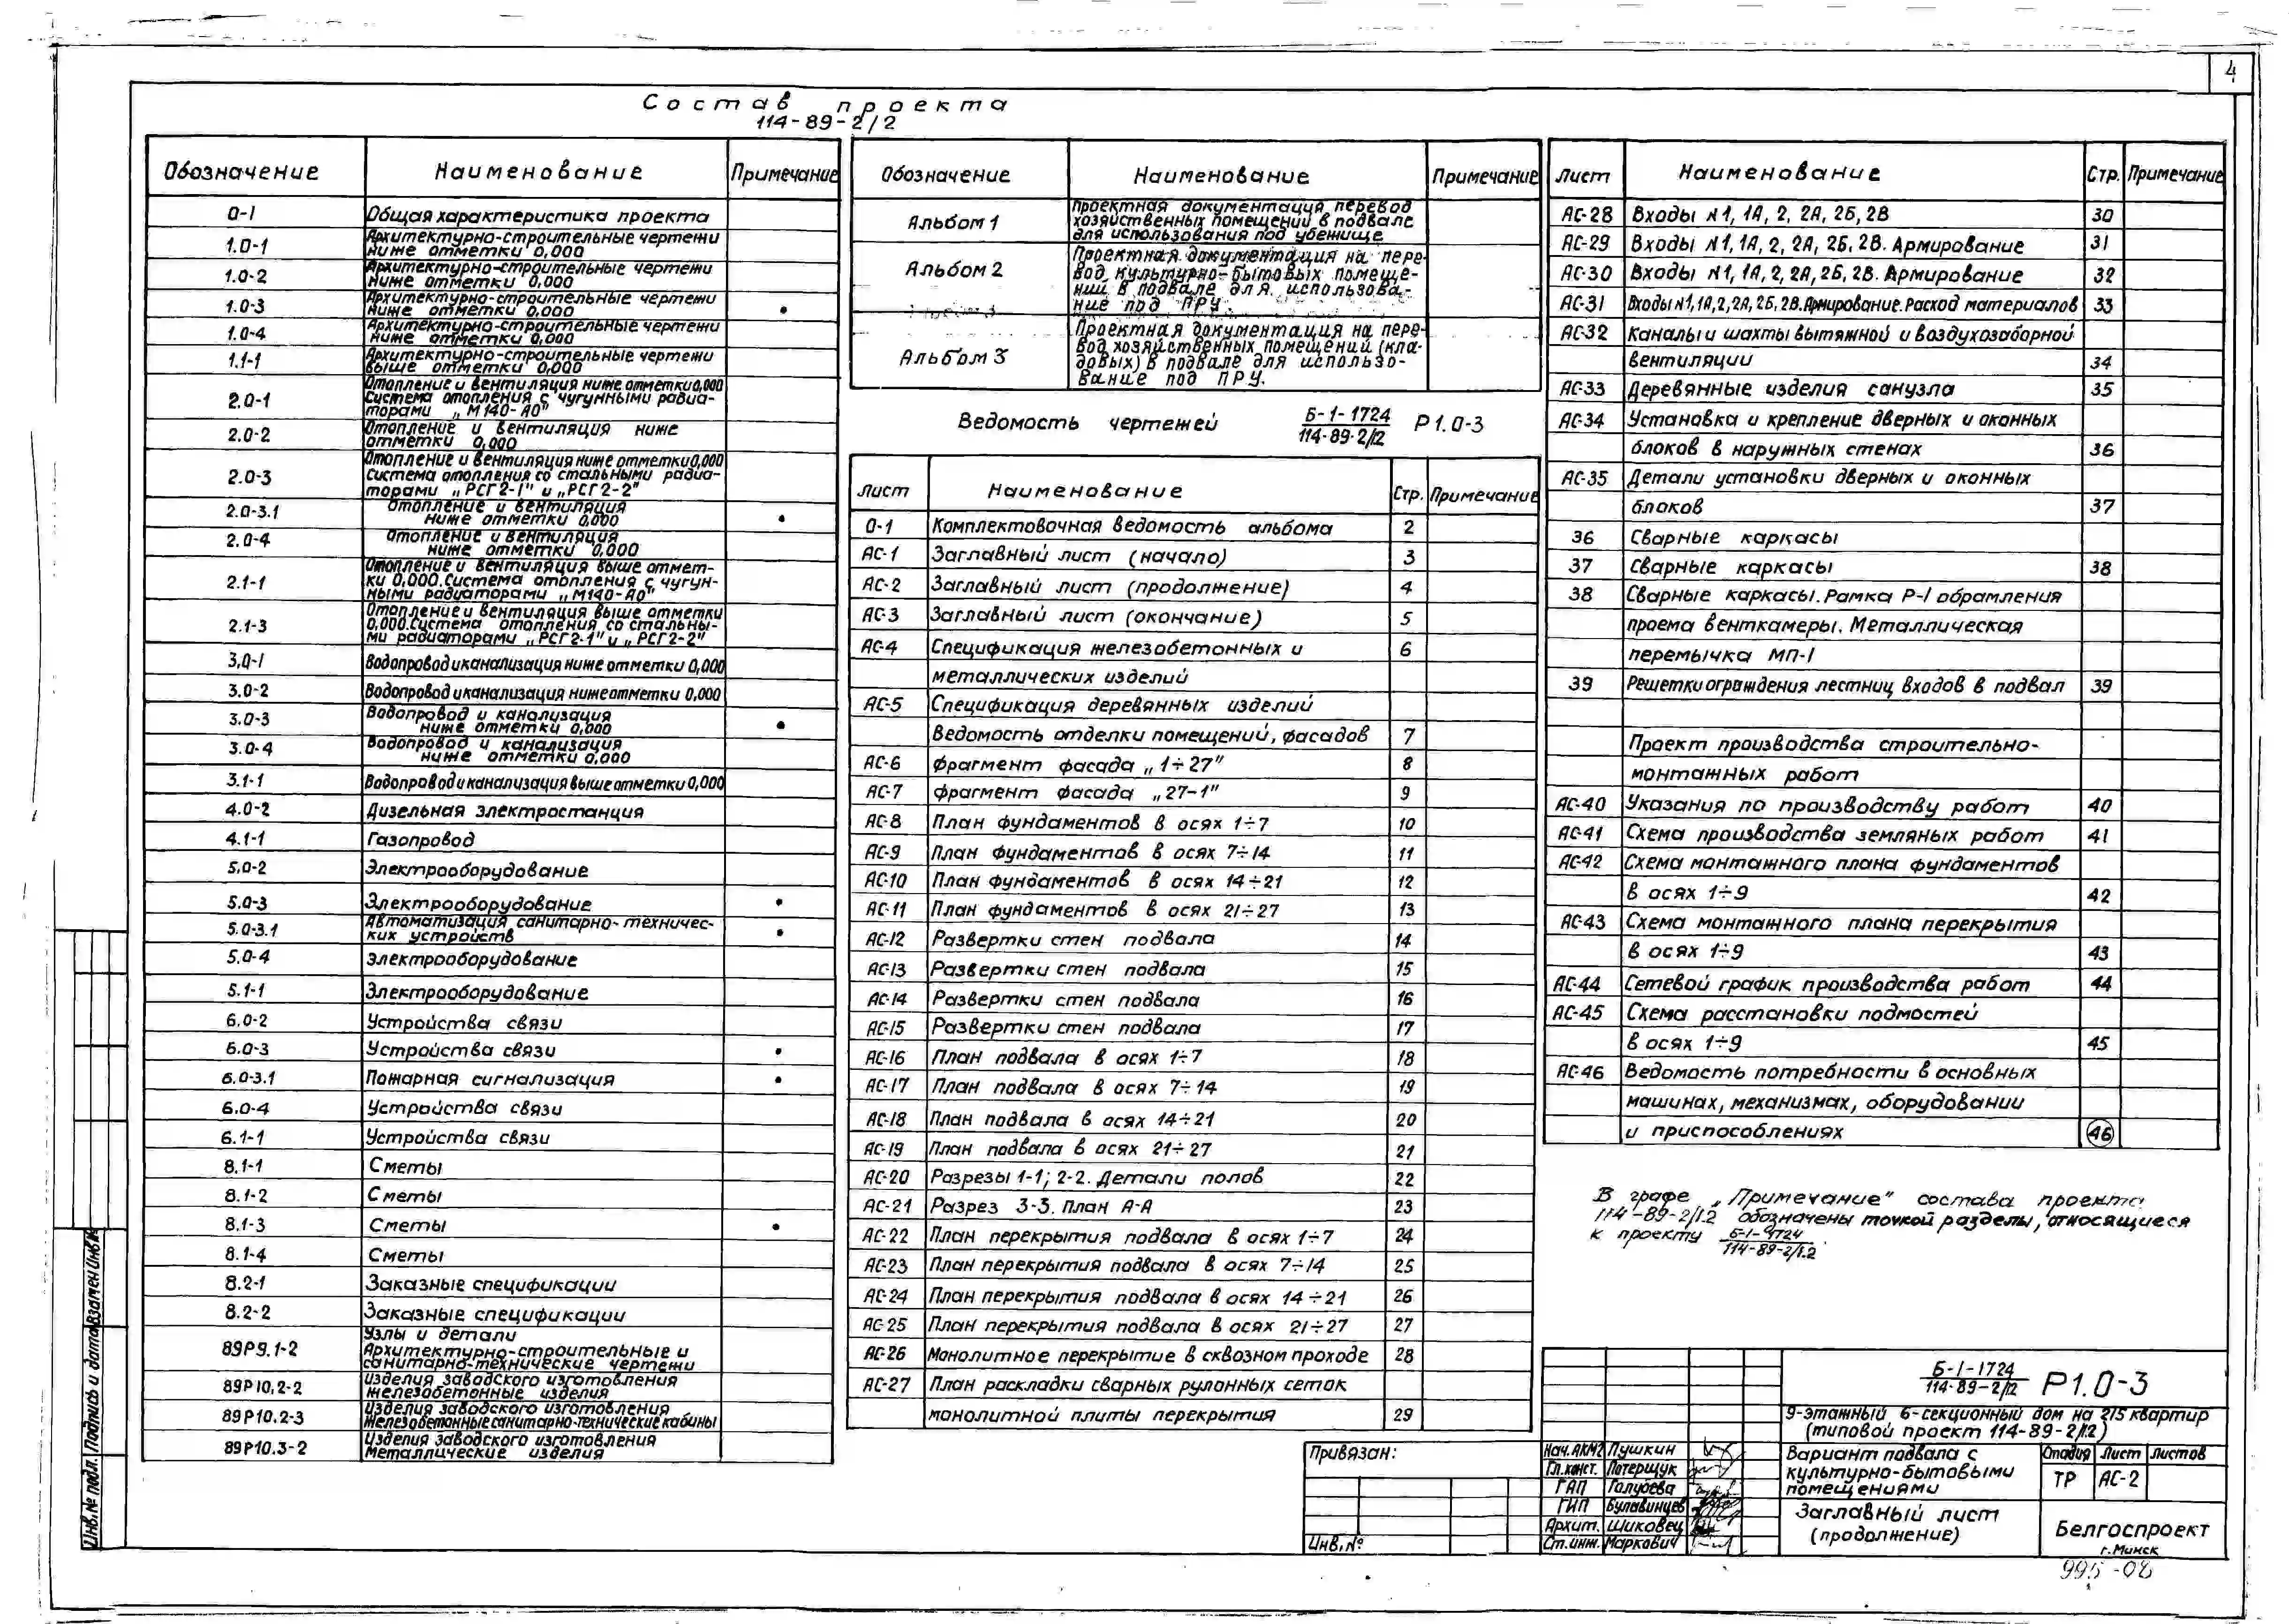 4
Состав проекта
114-89-2/2
Обозначение Наименование Примечание
0-1 Общая характеристика проекта
1.0-1 Архитектурно-строительные чертежи
ниже отметки 0,000
1.0-2 Архитектурно-строительные чертежи
ниже отметки 0,000
1.0-3 Архитектурно-строительные чертежи
ниже отметки 0,000 •
1.0-4 Архитектурно-строительные чертежи
ниже отметки 0,000
1.1-1 Архитектурно-строительные чертежи
выше отметки 0,000
2.0-1 Отопление и вентиляция ниже отметки 0,000
Система отопления с чугунными радиа-
торами „М140-А0"
2.0-2 Отопление и вентиляция ниже
отметки 0,000
2.0-3 Отопление и вентиляция ниже отметки 0,000
Система отопления со стальными радиа-
торами „РСГ2-1" и „РСГ2-2"
2.0-3.1 Отопление и вентиляция
ниже отметки 0,000 •
2.0-4 Отопление и вентиляция
ниже отметки 0,000
2.1-1 Отопление и вентиляция выше отмет-
ки 0,000. Система отопления с чугун-
ными радиаторами „М140-А0"
2.1-3 Отопление и вентиляция выше отметки
0,000. Система отопления со стальны-
ми радиаторами „РСГ2-1" и „РСГ2-2"
3.0-1 Водопровод и канализация ниже отметки 0,000
3.0-2 Водопровод и канализация ниже отметки 0,000
3.0-3 Водопровод и канализация
ниже отметки 0,000 •
3.0-4 Водопровод и канализация
ниже отметки 0,000
3.1-1 Водопровод и канализация выше отметки 0,000
4.0-2 Дизельная электростанция
4.1-1 Газопровод
5.0-2 Электрооборудование
5.0-3 Электрооборудование •
5.0-3.1 Автоматизация санитарно-техничес-
ких устройств •
5.0-4 Электрооборудование
5.1-1 Электрооборудование
6.0-2 Устройства связи
6.0-3 Устройства связи •
6.0-3.1 Пожарная сигнализация •
6.0-4 Устройства связи
6.1-1 Устройства связи
8.1-1 Сметы
8.1-2 Сметы
8.1-3 Сметы •
8.1-4 Сметы
8.2-1 Заказные спецификации
8.2-2 Заказные спецификации
89Р9.1-2 Узлы и детали
Архитектурно-строительные и
санитарно-технические чертежи
89Р10.2-2 Изделия заводского изготовления
Железобетонные изделия
89Р10.2-3 Изделия заводского изготовления
Железобетонные санитарно-технические кабины
89Р10.3-2 Изделия заводского изготовления
Металлические изделия
Обозначение Наименование Примечание
Альбом 1 Проектная документация перевод
хозяйственных помещений в подвале
для использования под убежище
Альбом 2 Проектная документация на пере-
вод культурно-бытовых помеще-
ний в подвале для использова-
ние под ПРУ.
Альбом 3 Проектная документация на пере-
вод хозяйственных помещений (кла-
довых) в подвале для использо-
вание под ПРУ.
Ведомость чертежей Б-1-1724 / 114-89-2/12 Р1.0-3
Лист Наименование Стр. Примечание
0-1 Комплектовочная ведомость альбома 2
АС-1 Заглавный лист (начало) 3
АС-2 Заглавный лист (продолжение) 4
АС-3 Заглавный лист (окончание) 5
АС-4 Спецификация железобетонных и 6
металлических изделий
АС-5 Спецификация деревянных изделий
Ведомость отделки помещений, фасадов 7
АС-6 Фрагмент фасада „1÷27" 8
АС-7 Фрагмент фасада „27-1" 9
АС-8 План фундаментов в осях 1÷7 10
АС-9 План фундаментов в осях 7÷14 11
АС-10 План фундаментов в осях 14÷21 12
АС-11 План фундаментов в осях 21÷27 13
АС-12 Развертки стен подвала 14
АС-13 Развертки стен подвала 15
АС-14 Развертки стен подвала 16
АС-15 Развертки стен подвала 17
АС-16 План подвала в осях 1÷7 18
АС-17 План подвала в осях 7÷14 19
АС-18 План подвала в осях 14÷21 20
АС-19 План подвала в осях 21÷27 21
АС-20 Разрезы 1-1; 2-2. Детали полов 22
АС-21 Разрез 3-3. План А-А 23
АС-22 План перекрытия подвала в осях 1÷7 24
АС-23 План перекрытия подвала в осях 7÷14 25
АС-24 План перекрытия подвала в осях 14÷21 26
АС-25 План перекрытия подвала в осях 21÷27 27
АС-26 Монолитное перекрытие в сквозном проходе 28
АС-27 План раскладки сварных рулонных сеток
монолитной плиты перекрытия 29
Лист Наименование Стр. Примечание
АС-28 Входы №1, 1А, 2, 2А, 2Б, 2В 30
АС-29 Входы №1, 1А, 2, 2А, 2Б, 2В. Армирование 31
АС-30 Входы №1, 1А, 2, 2А, 2Б, 2В. Армирование 32
АС-31 Входы №1, 1А, 2, 2А, 2Б, 2В. Армирование. Расход материалов 33
АС-32 Каналы и шахты вытяжной и воздухозаборной
вентиляции 34
АС-33 Деревянные изделия санузла 35
АС-34 Установка и крепление дверных и оконных
блоков в наружных стенах 36
АС-35 Детали установки дверных и оконных
блоков 37
36 Сварные каркасы
37 Сварные каркасы 38
38 Сварные каркасы. Рамка Р-1 обрамления
проема венткамеры. Металлическая
перемычка МП-1
39 Решетки ограждения лестниц входов в подвал 39
Проект производства строительно-
монтажных работ
АС-40 Указания по производству работ 40
АС-41 Схема производства земляных работ 41
АС-42 Схема монтажного плана фундаментов
в осях 1÷9 42
АС-43 Схема монтажного плана перекрытия
в осях 1÷9 43
АС-44 Сетевой график производства работ 44
АС-45 Схема расстановки подмостей
в осях 1÷9 45
АС-46 Ведомость потребности в основных
машинах, механизмах, оборудовании
и приспособлениях 46
В графе „Примечание" состава проекта
114-89-2/1.2 обозначены точкой разделы, относящиеся
к проекту Б-1-1724 / 114-89-2/1.2
Б-1-1724 / 114-89-2/12 Р1.0-3
9-этажный 6-секционный дом на 215 квартир
(типовой проект 114-89-2/12)
Вариант подвала с
культурно-бытовыми
помещениями
Стадия Лист Листов
ТР АС-2
Заглавный лист
(продолжение)
Белгоспроект
г. Минск
Привязан:
Инв. №
Нач. АКМ2 Пушкин
Гл. конст. Потерщук
ГАП Голубева
ГИП Булавинцев
Архит. Шиковец
Ст. инж. Маркович
995-08
Инв. № подл. Подпись и дата Взамен Инв. №